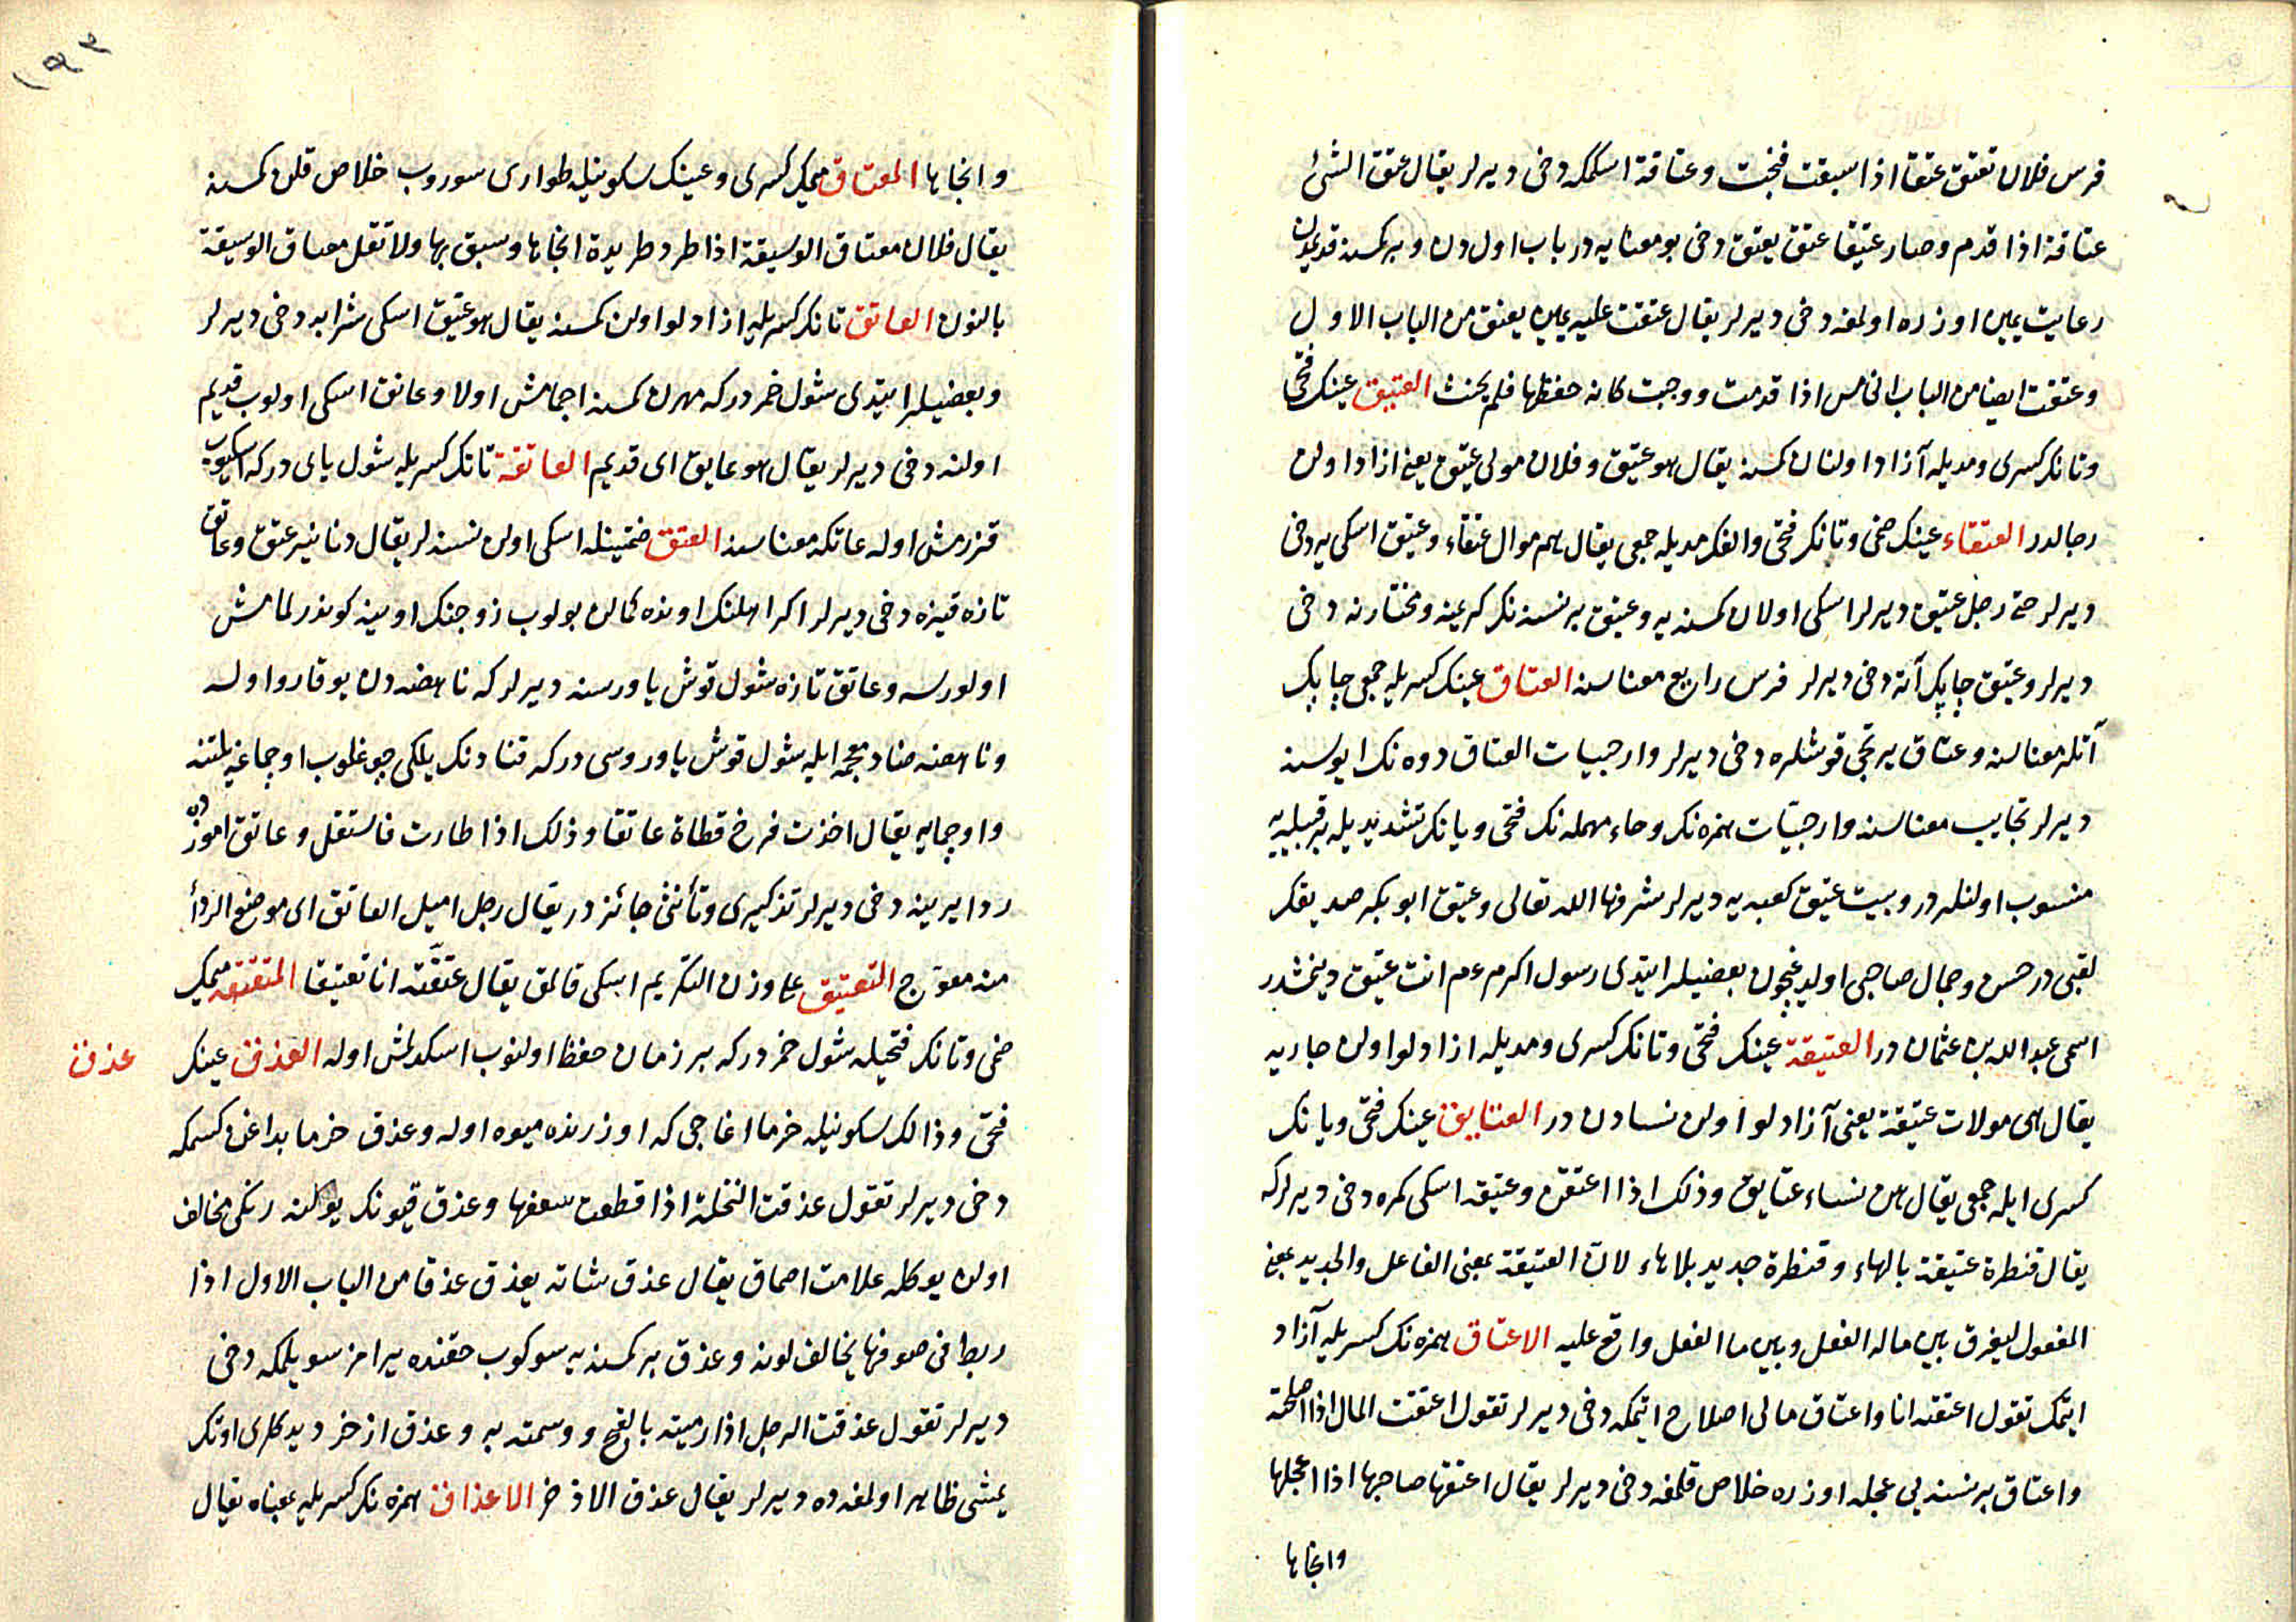 فرس فلان تعتق عتقا اذا سبقت فنجت وعتاقة اسكمكه دخى ديرلر يقال عتق الشئ
عتاقة اذا قدم وصار عتيقا عتق يعتق دخى بو معنايه در باب اولدن و بر كمسنه قديمدن
رعايت يمين اوزره اولمغه دخى ديرلر يقال عتقت عليه يمين يعتق من الباب الاول
وعتقت ايضا من الباب الخامس اذا قدمت ووجبت كانه حفظها فلم يحنث العتيق عينك فتحى
وتانك كسرى ومديله آزاد اولنان كمسنه يقال هو عتيق وفلان مولى عتيق يعنى ازاد اولن
رجالدر العتقاء عينك ضمى وتانك فتحى والفك مديله جمعى يقال هم موال عتقاء وعتيق اسكى يه دخى
ديرلر حتى رجل عتيق ديرلر اسكى اولان كمسنه يه وعتيق بر نسنه نك كريمنه ومختارنه دخى
ديرلر وعتيق چاپك آته دخى ديرلر فرس رايع معناسنه العتاق عينك كسريله جمعى چاپك
آتلر معناسنه وعتاق يرتجى قوشلره دخى ديرلر وارحبيات العتاق دوه نك ايوسنه
ديرلر نجايب معناسنه وارحبيات همزه نك وحاء مهمله نك فتحى ويانك تشديديله بر قبيله يه
منسوب اولنلردر وبيت عتيق كعبه يه ديرلر شرفها الله تعالى وعتيق ابو بكر صديقك
لقبى در حسن وجمال صاحبى اولديغيچون بعضيلر ايتدى رسول اكرم عم انت عتيق ديمشدر
اسمى عبد الله بن عثمان در العتيقة عينك فتحى وتانك كسرى ومديله ازادلو اولن جاريه
يقال هى مولات عتيقة يعنى آزادلو اولن نسادن در العتايق عينك فتحى ويانك
كسرى ايله جمعى يقال هن نساء عتايق وذلك اذا اعتقن وعتيقه اسكى كمره دخى ديرلر كه
يقال قنطرة عتيقة بالهاء وقنطرة جديد بلا هاء لان العتيقة بمعنى الفاعل والجديد بمعنى
المفعول ليفرق بين ما له الفعل وبين ما الفعل واقع عليه الاعتاق همزه نك كسريله آزاد
ايتمك تقول اعتقته انا واعتاق مالى اصلاح ايتمكه دخى ديرلر تقول اعتقت المال اذا اصلحته
واعتاق بر نسنه يى عجله اوزره خلاص قلمغه دخى ديرلر يقال اعتقها صاحبها اذا اعجلها
وانجاها
١٩٣
وانجاها المعتاق ميمك كسرى وعينك سكونيله طوارى سوروب خلاص قلن كمسنه
يقال فلان معتاق الوسيقة اذا طرد طريدة انجاها وسبق بها ولا تقل معناق الوسيقة
بالنون العاتق تانك كسريله ازادلو اولن كمسنه يقال هو عتيق اسكى شرابه دخى ديرلر
وبعضيلر ايتدى شول خمردر كه مهرن كمسنه اچمامش اولا وعاتق اسكى اولوب قديم
اولنه دخى ديرلر يقال هو عاتق اى قديم العاتقة تانك كسريله شول ياى در كه اسكيوب
قزرمش اوله عاتكه معناسنه العتق ضمتينله اسكى اولن نسنه لر يقال دنانير عتق وعاتق
تازه قيزه دخى ديرلر اكر اهلنك اونده كمالن بولوب زوجنك اوينه كوندرلمامش
اولورسه وعاتق تازه شول قوش ياورسنه ديرلر كه ناهضه دن يوقارو اوله
وناهضه ضاد معجمه ايله شول قوش ياوروسى در كه قنادنك يلكى چوغلوب اوچماغه يلتنه
واوچمايه يقال اخذت فرخ قطاة عاتقا وذلك اذا طارت فاستقل وعاتق اموزده
ردا يرينه دخى ديرلر تذكيرى وتأنيثى جائزدر يقال رجل اميل العاتق اى موضع الردأ
منه معوج التعتيق على وزن التكريم اسكى قالمق يقال عتقته انا تعتيقا المعتقة ميمك
ضمى وتانك فتحيله شول خمردر كه بر زمان حفظ اولنوب اسكدلمش اوله العذق عينك
عذق
فتحى وذالك سكونيله خرما اغاجى كه اوزرنده ميوه اوله وعذق خرما بداغن كسمكه
دخى ديرلر تقول عذقت النخلة اذا قطعت سعفها وعذق قيونك يوكنه رنكى مخالف
اولن يوكله علامت اصماق يقال عذق شاته يعذق عذقا من الباب الاول اذا
ربط فى صوفها يخالف لونه وعذق بر كمسنه يه سوكوب حقنده يرامز سويلمكه دخى
ديرلر تقول عذقت الرجل اذا رميته بالقبح ووسمته به وعذق اذخر ديدكلرى اوتك
يمشى ظاهر اولمغه ده ديرلر يقال عذق الاذخر الاعذاق همزه نك كسريله بمعناه يقال